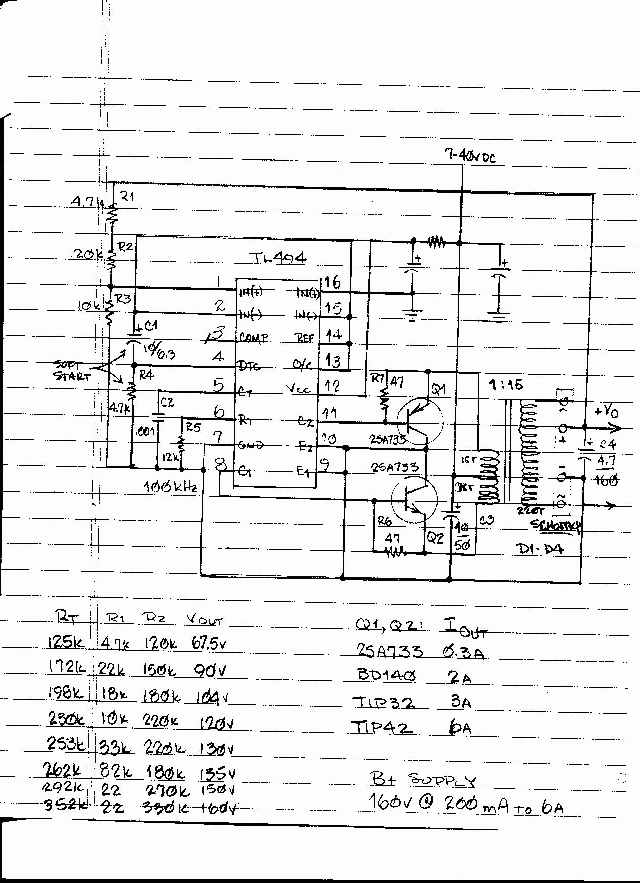 7-40VDC
4.7k R1
20k R2
TL494
10k R3
1 IN(+) IN(+) 16
2 IN(-) IN(-) 15
3 COMP REF 14
4 DTC O/C 13
5 CT VCC 12
6 RT C2 11
7 GND E2 10
8 C1 E1 9
+ C1
10/6.3
SOFT START
R4
4.7k
C2
.001
R5
12k
100kHz
R7 47
Q1
2SA733
2SA733
R6
47
Q2
1:15
15T
15T
220T
+
10
50
C3
+VO
+ C4
4.7
160
SCHOTTKY
D1-D4
RT R1 R2 VOUT
125k 4.7k 120k 67.5V
172k 22k 150k 90V
198k 18k 180k 104V
230k 10k 220k 120V
253k 33k 220k 130V
262k 82k 180k 135V
292k 22 270k 150V
352k 22 330k 160V
Q1, Q2: IOUT
2SA733 0.3A
BD140 2A
TIP32 3A
TIP42 6A
B+ SUPPLY
160V @ 200mA TO 6A